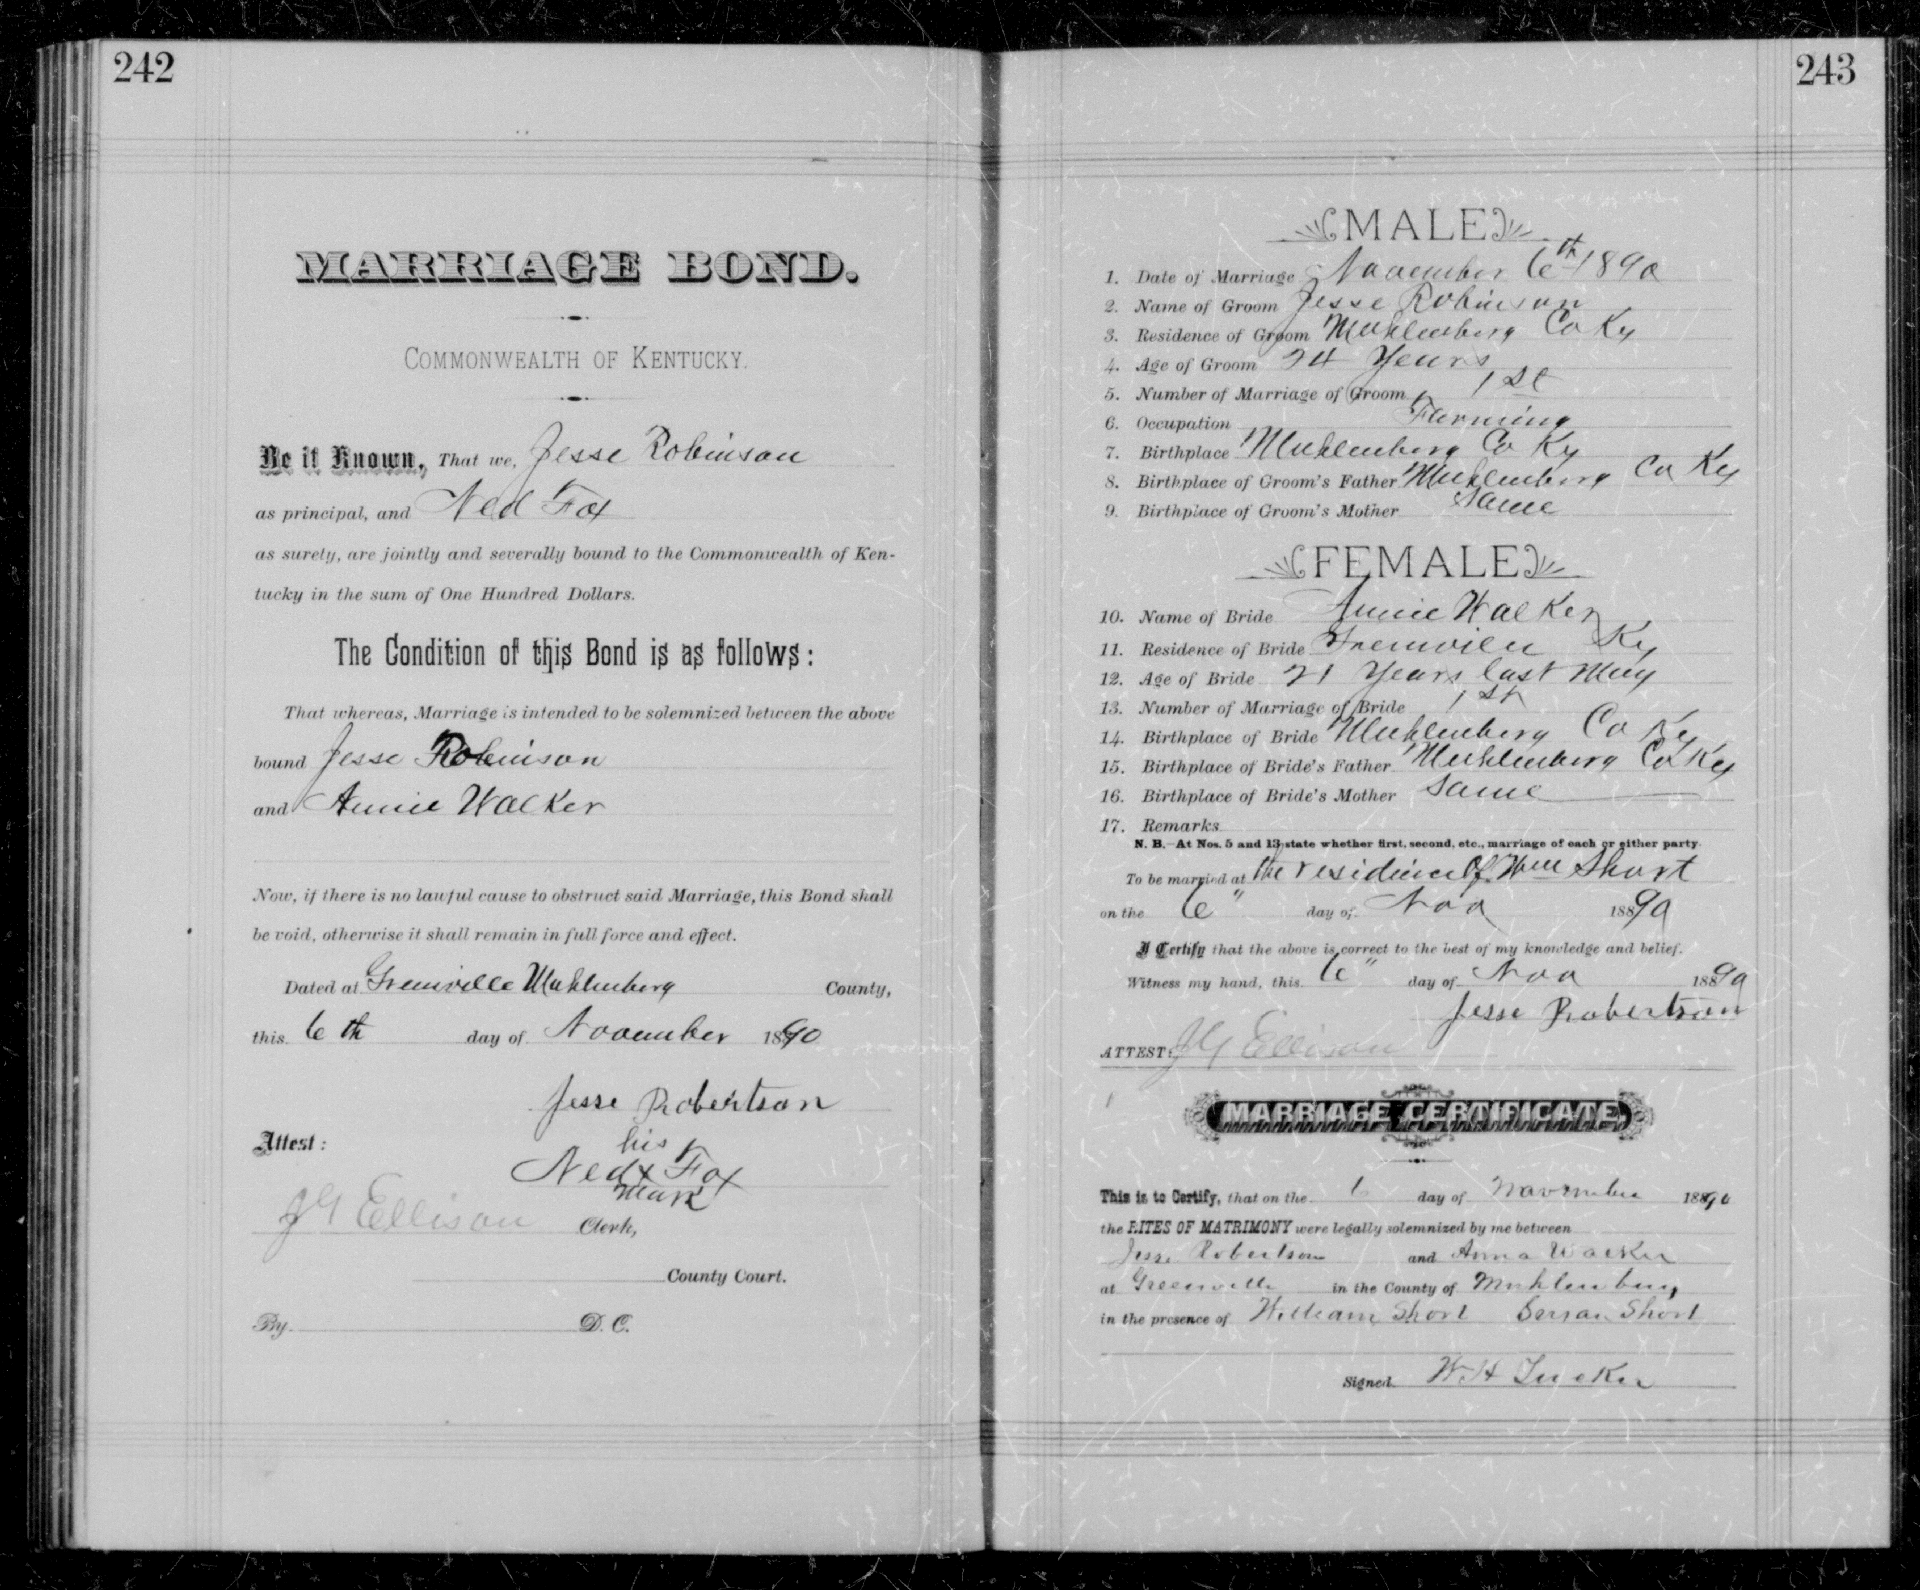 242
MARRIAGE BOND.
COMMONWEALTH OF KENTUCKY.
Be it Known, That we, Jesse Robinson
as principal, and Ned Fox
as surety, are jointly and severally bound to the Commonwealth of Ken-
tucky in the sum of One Hundred Dollars.
The Condition of this Bond is as follows:
That whereas, Marriage is intended to be solemnized between the above
bound Jesse Robinson
and Annie Walker
Now, if there is no lawful cause to obstruct said Marriage, this Bond shall
be void, otherwise it shall remain in full force and effect.
Dated at Greenville Muhlenberg County,
this 6th day of November 1890
Jesse Robertson
Attest:
his
Ned x Fox
mark
J G Ellison Clerk,
County Court.
By D. C.
243
MALE
1. Date of Marriage November 6th 1890
2. Name of Groom Jesse Robinson
3. Residence of Groom Muhlenberg Co Ky
4. Age of Groom 24 Years
5. Number of Marriage of Groom 1st
6. Occupation Farming
7. Birthplace Muhlenberg Co Ky
8. Birthplace of Groom's Father Muhlenberg Co Ky
9. Birthplace of Groom's Mother Same
FEMALE
10. Name of Bride Annie Walker
11. Residence of Bride Ky
12. Age of Bride 21 Years last May
13. Number of Marriage of Bride 1st
14. Birthplace of Bride Muhlenberg Co Ky
15. Birthplace of Bride's Father Muhlenberg Co Ky
16. Birthplace of Bride's Mother Same
17. Remarks
N. B.—At Nos. 5 and 13 state whether first, second, etc., marriage of each or either party.
To be married at the residence of Wm Short
on the 6" day of Nov 1890
I Certify that the above is correct to the best of my knowledge and belief.
Witness my hand, this 6" day of Nov 1890
Jesse Robertson
ATTEST: J G Ellison
MARRIAGE CERTIFICATE.
This is to Certify, that on the 6 day of November 1890
the RITES OF MATRIMONY were legally solemnized by me between
Jesse Robertson and Anna Walker
at Greenville in the County of Muhlenburg
in the presence of William Short Short
Signed W H Tucker